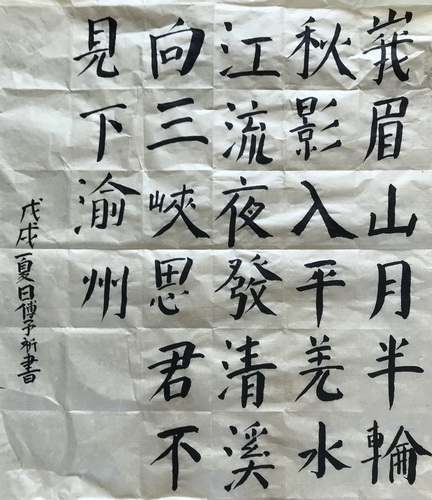 峩眉山月半輪
秋影入平羌水
江流夜發清溪
向三峽思君不
見下渝州
戊戌夏日傅予祈書